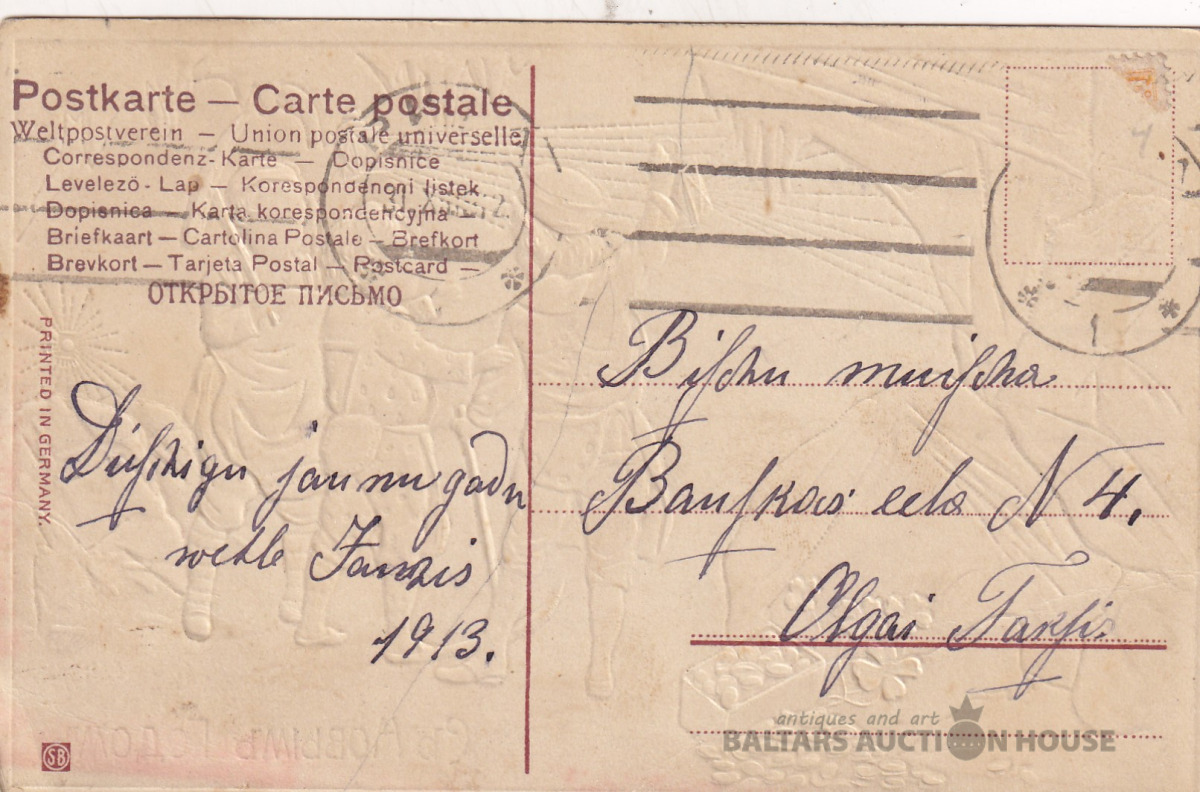 Postkarte — Carte postale
Weltpostverein — Union postale universelle
Correspondenz-Karte — Dopisnice
Levelező-Lap — Korespondenčni listek
Dopisnica — Karta korespondencyjna
Briefkaart — Cartolina Postale — Brefkort
Brevkort — Tarjeta Postal — Postcard —
ОТКРЫТОЕ ПИСЬМО
PRINTED IN GERMANY.
jaunu gadu
1913.
SB
Bischu muischa
Bauskas eela N 4.
Olgai
antiques and art
BALTARS AUCTION HOUSE